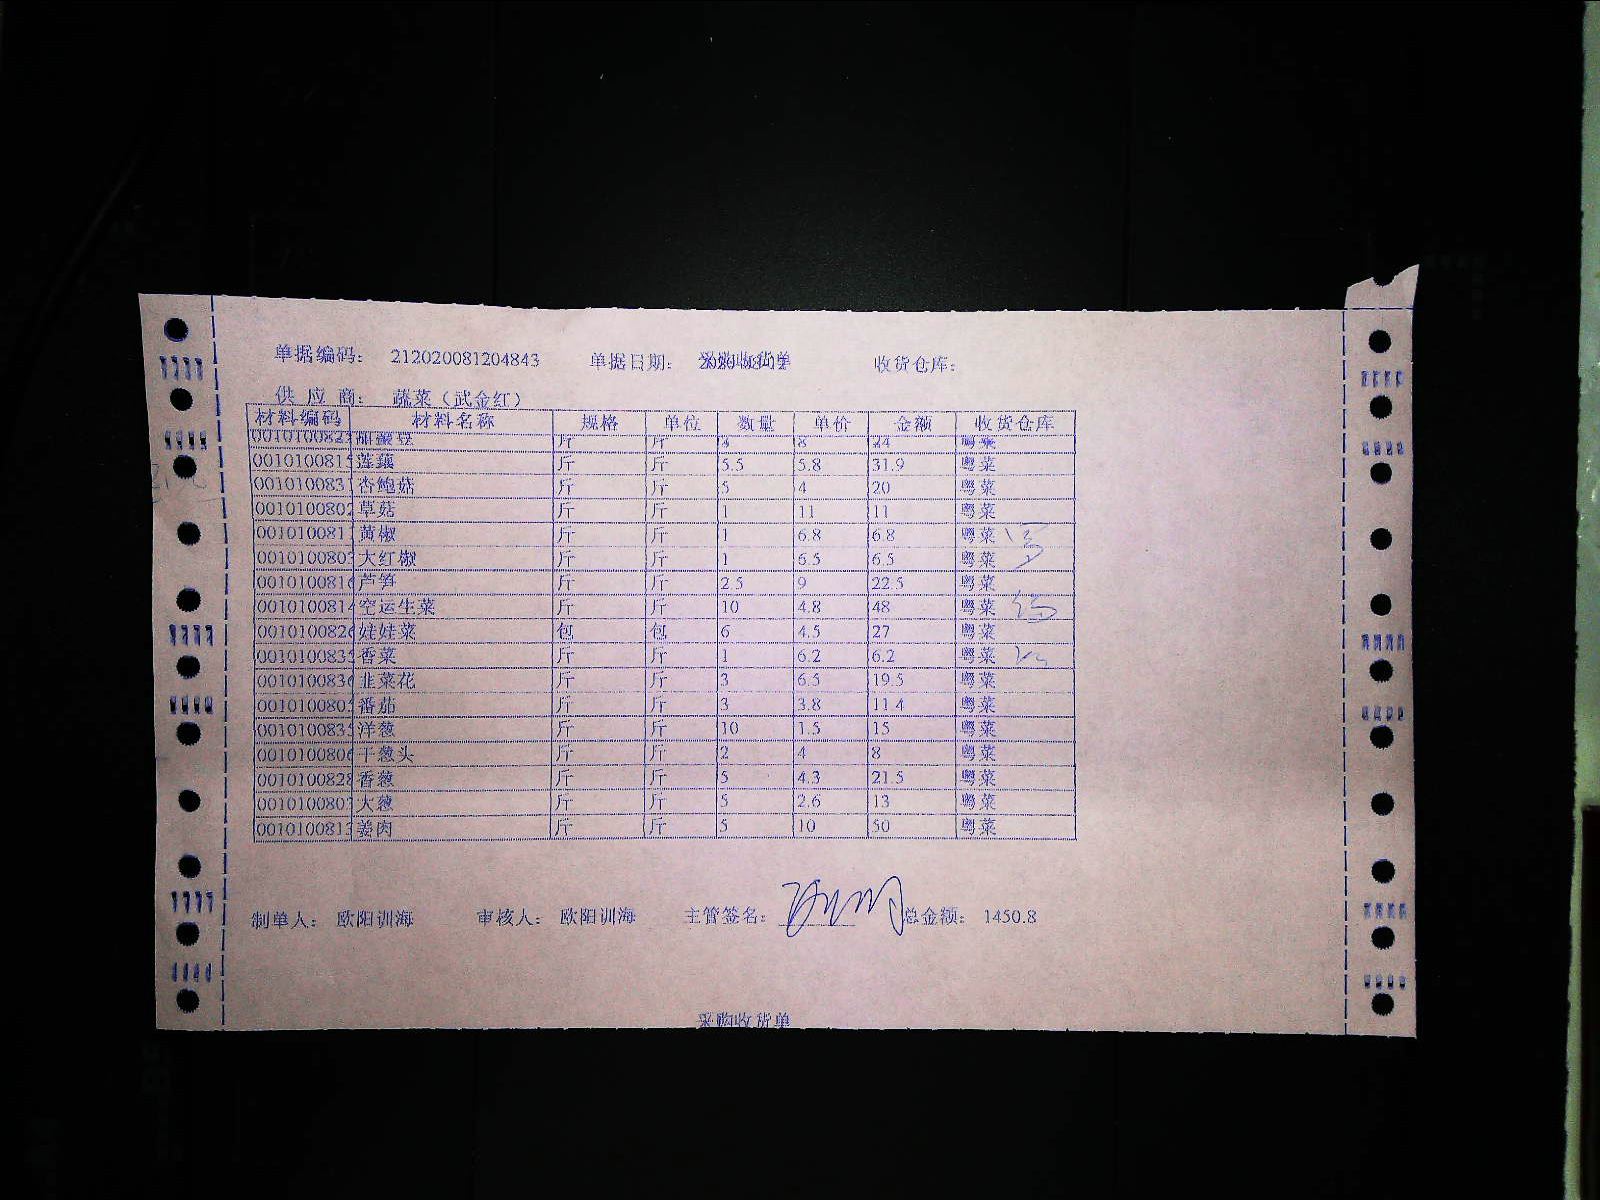 单据编码: 212020081204843 单据日期: 收货仓库:
供 应 商: 蔬菜(武金红)
材料编码 材料名称 规格 单位 数量 单价 金额 收货仓库
001010082 斤 斤 8 24 粤菜
001010081 莲藕 斤 斤 5.5 5.8 31.9 粤菜
001010083 杏鲍菇 斤 斤 5 4 20 粤菜
001010080 草菇 斤 斤 1 11 11 粤菜
001010081 黄椒 斤 斤 1 6.8 6.8 粤菜
001010080 大红椒 斤 斤 1 6.5 6.5 粤菜
001010081 芦笋 斤 斤 2.5 9 22.5 粤菜
001010081 空运生菜 斤 斤 10 4.8 48 粤菜
001010082 娃娃菜 包 包 6 4.5 27 粤菜
001010083 香菜 斤 斤 1 6.2 6.2 粤菜
001010083 韭菜花 斤 斤 3 6.5 19.5 粤菜
001010080 番茄 斤 斤 3 3.8 11.4 粤菜
001010083 洋葱 斤 斤 10 1.5 15 粤菜
001010080 干葱头 斤 斤 2 4 8 粤菜
001010082 香葱 斤 斤 5 4.3 21.5 粤菜
001010080 大葱 斤 斤 5 2.6 13 粤菜
001010081 姜肉 斤 斤 5 10 50 粤菜
制单人: 欧阳训海 审核人: 欧阳训海 主管签名: 总金额: 1450.8
采购收货单